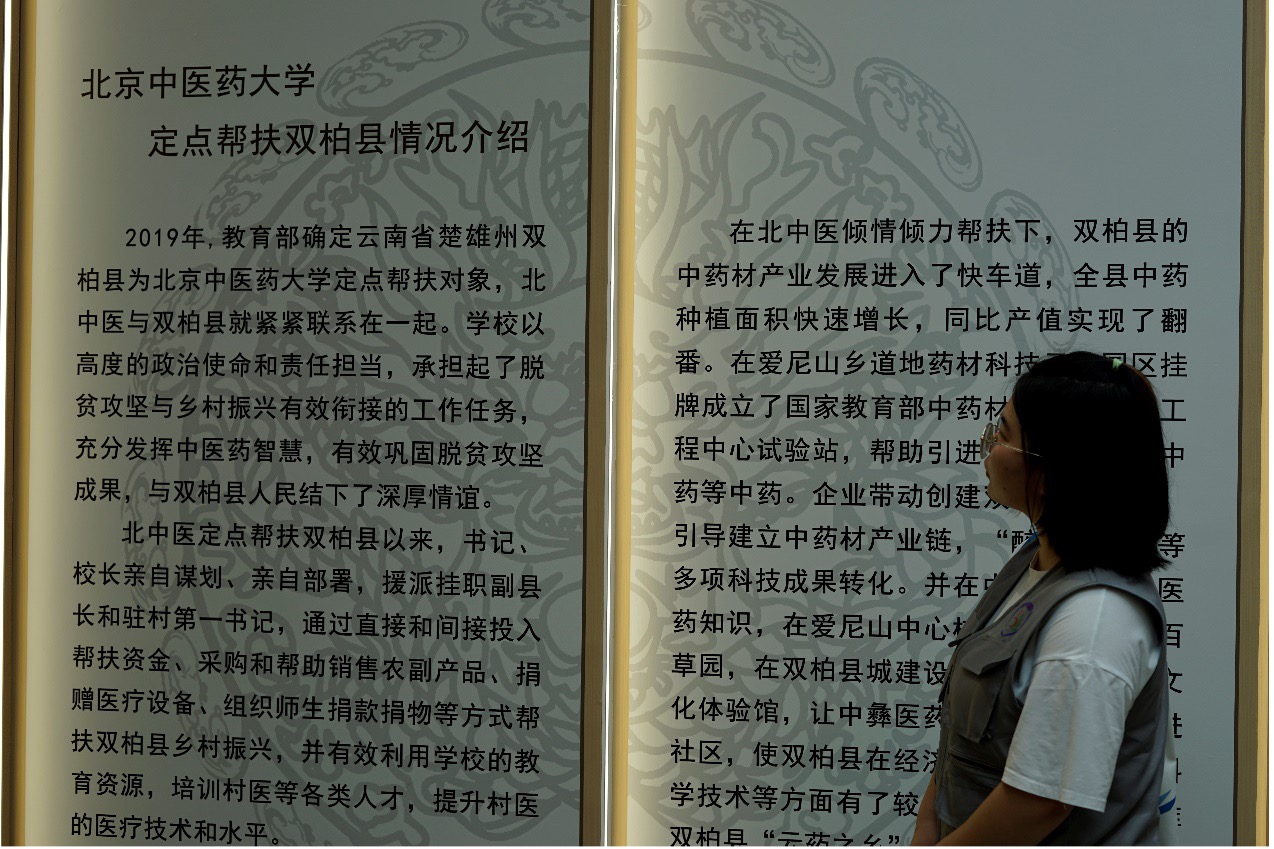 北京中医药大学
定点帮扶双柏县情况介绍
2019年,教育部确定云南省楚雄州双
柏县为北京中医药大学定点帮扶对象，北
中医与双柏县就紧紧联系在一起。学校以
高度的政治使命和责任担当，承担起了脱
贫攻坚与乡村振兴有效衔接的工作任务，
充分发挥中医药智慧，有效巩固脱贫攻坚
成果，与双柏县人民结下了深厚情谊。
北中医定点帮扶双柏县以来，书记、
校长亲自谋划、亲自部署，援派挂职副县
长和驻村第一书记，通过直接和间接投入
帮扶资金、采购和帮助销售农副产品、捐
赠医疗设备、组织师生捐款捐物等方式帮
扶双柏县乡村振兴，并有效利用学校的教
育资源，培训村医等各类人才，提升村医
的医疗技术和水平。
在北中医倾情倾力帮扶下，双柏县的
中药材产业发展进入了快车道，全县中药
种植面积快速增长，同比产值实现了翻
番。在爱尼山乡道地药材科技 区挂
牌成立了国家教育部中药材 工
程中心试验站，帮助引进 中
药等中药。企业带动创建双
引导建立中药材产业链，“ 等
多项科技成果转化。并在 医
药知识，在爱尼山中心 百
草园，在双柏县城建设 文
化体验馆，让中彝医药 进
社区，使双柏县在经济
学技术等方面有了较
双柏县“云药之乡”